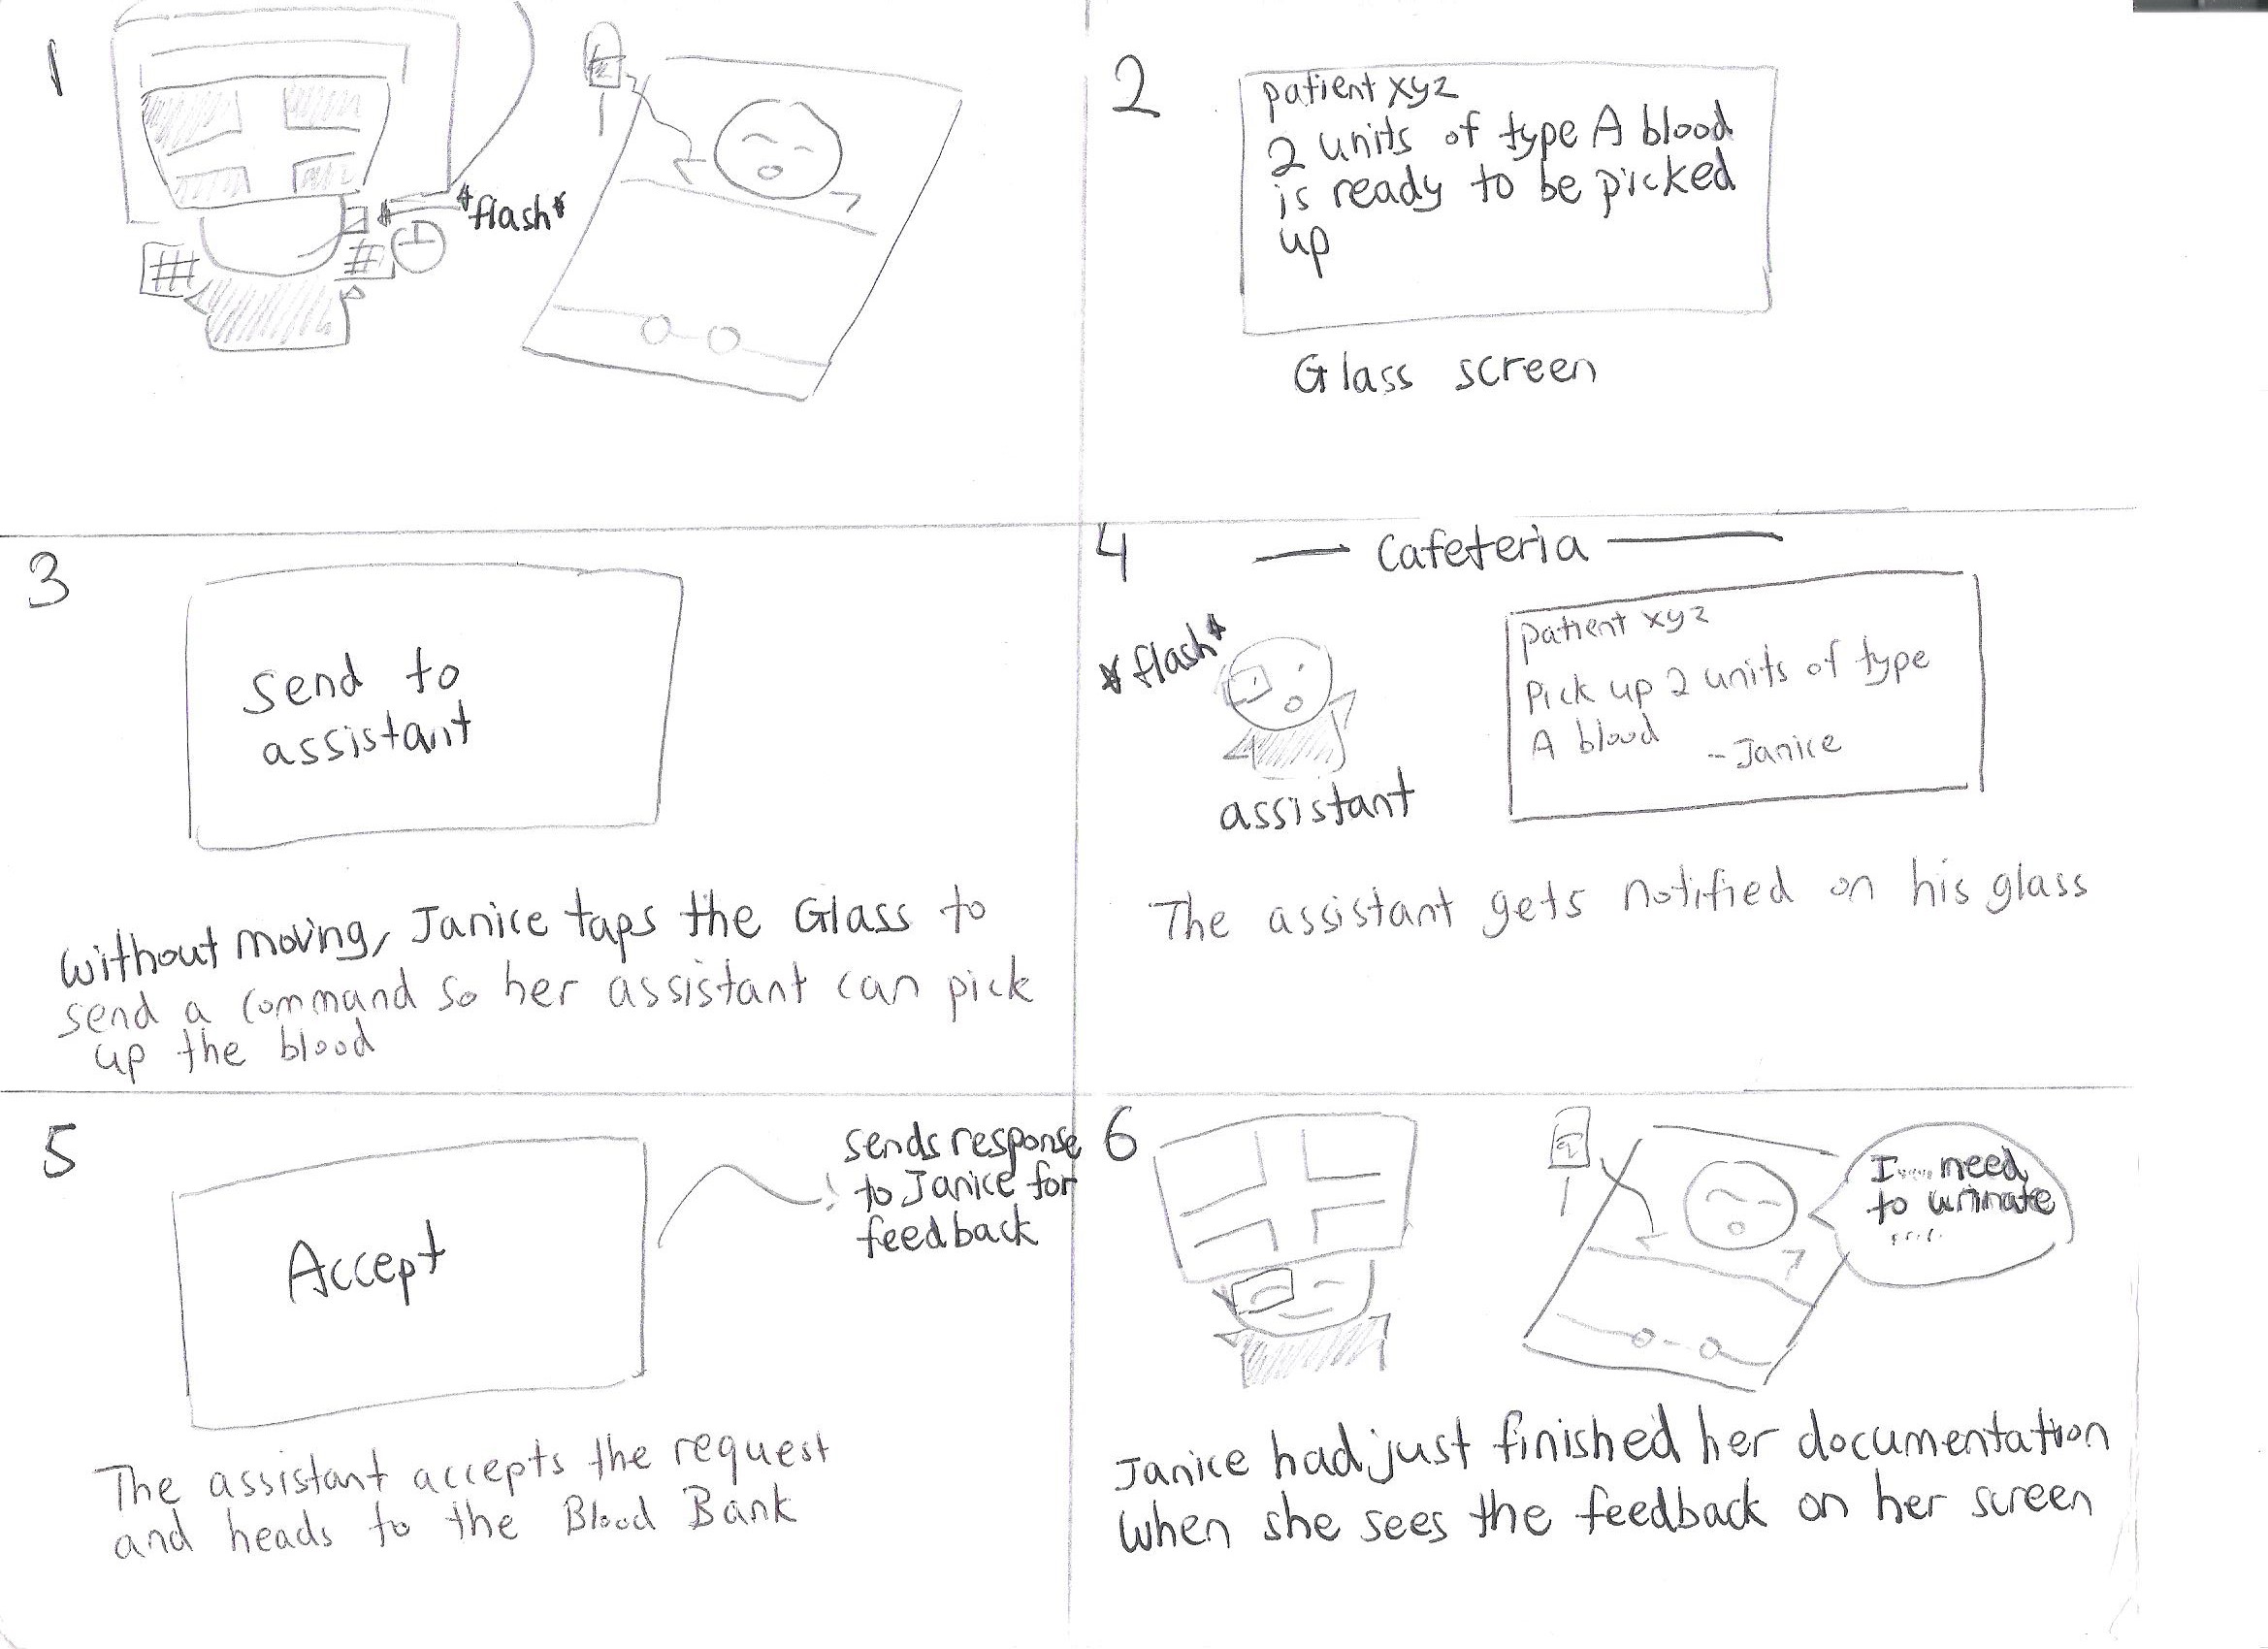 1
*flash*
2
patient xyz
2 units of type A blood
is ready to be picked
up
Glass screen
3
Send to
assistant
Without moving, Janice taps the Glass to
send a command so her assistant can pick
up the blood
4
Cafeteria
*flash*
assistant
patient xyz
Pick up 2 units of type
A blood
-Janice
The assistant gets notified on his glass
5
Accept
sends response
to Janice for
feedback
The assistant accepts the request
and heads to the Blood Bank
6
I.... need
to urinate
.....
Janice had just finished her documentation
when she sees the feedback on her screen